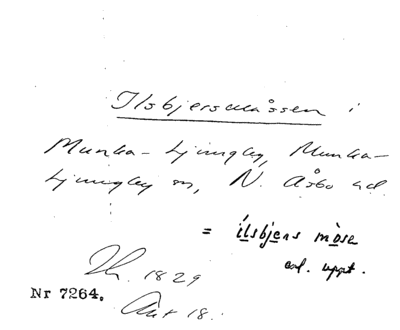 Ilsbjersmåssen i
Munka-Ljungby, Munka-
Ljungby sn, N. Åsbo hd.
= ilsbjens måse
enl. uppt.
Th. 1829
Nr 7264.
Akt 18.